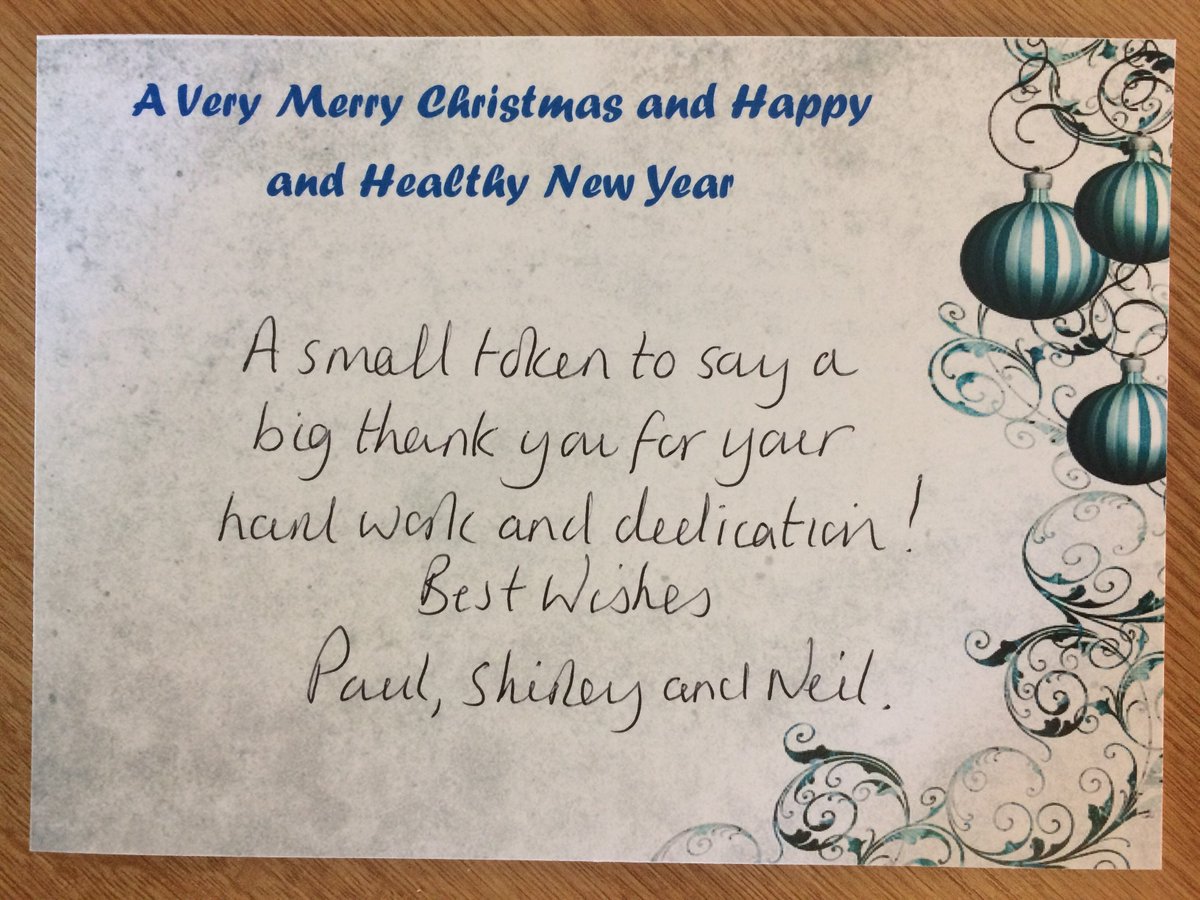 A Very Merry Christmas and Happy
and Healthy New Year
A small token to say a
big thank you for your
hard work and dedication!
Best Wishes
Paul, Shirley and Neil.